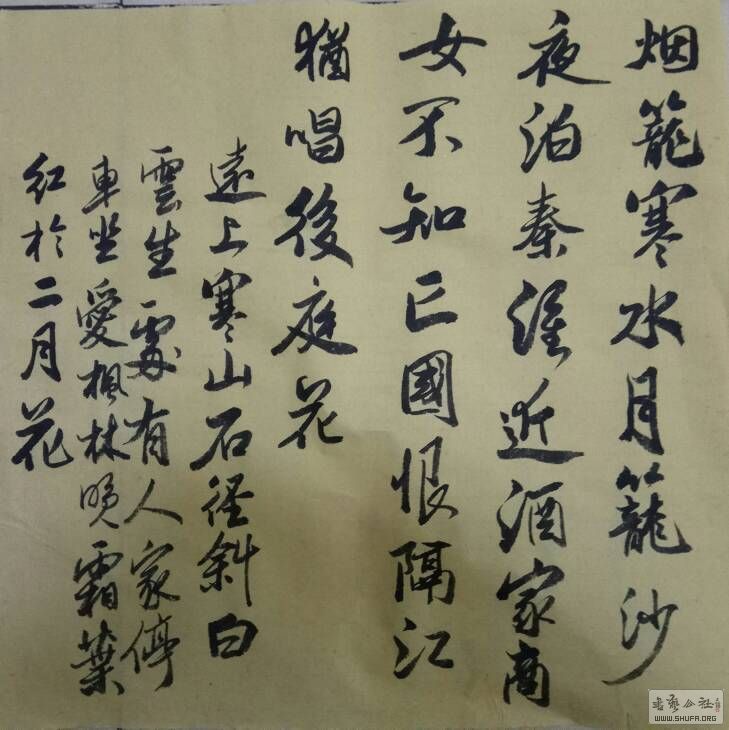 烟籠寒水月籠沙
夜泊秦淮近酒家商
女不知亡國恨隔江
猶唱後庭花
遠上寒山石径斜白
雲生處有人家停
車坐愛楓林晚霜葉
紅於二月花
書藝公社
WWW.SHUFA.ORG